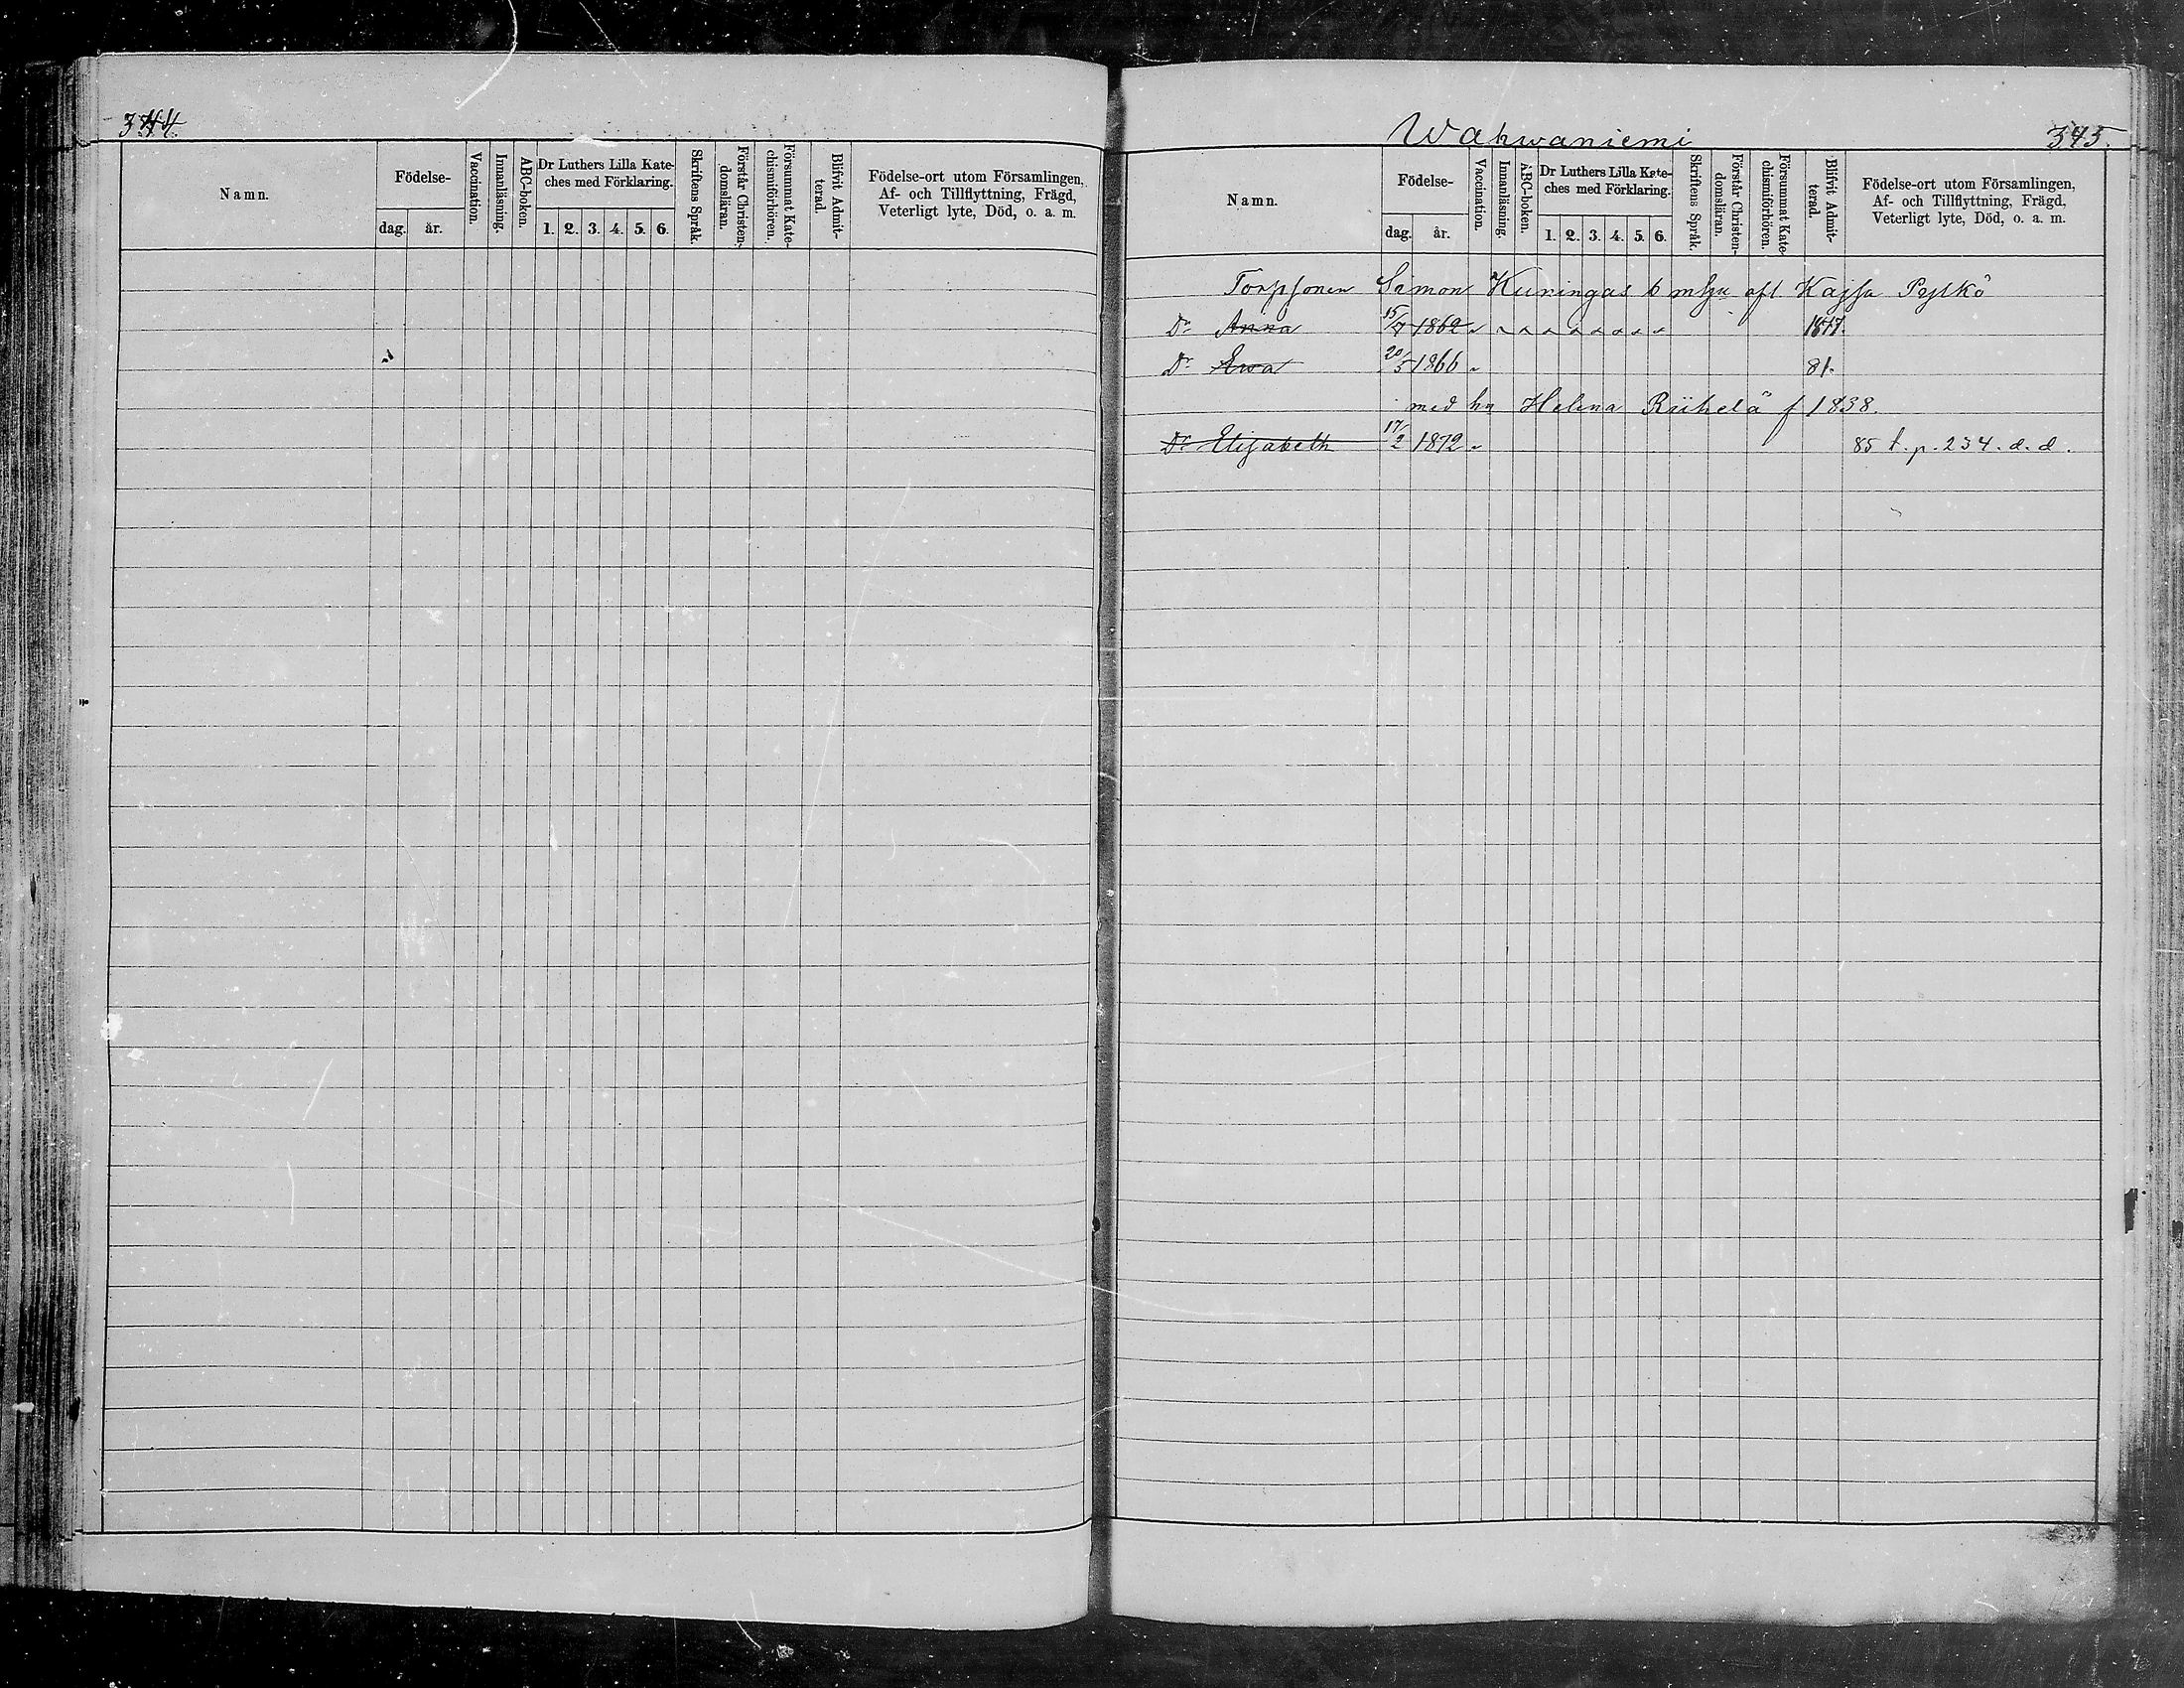 344.
Namn.
Födelse-
dag.
år.
Vaccination.
Innanläsning.
ABC-boken.
Dr Luthers Lilla Kate-
ches med Förklaring.
1. 2. 3. 4. 5. 6.
Skriftens Språk.
Förstår Christen-
domsläran.
Försummat Kate-
chismiförhören.
Blifvit Admit-
terad.
Födelse-ort utom Församlingen,
Af- och Tillflyttning, Frägd,
Veterligt lyte, Död, o. a. m.
Wahwaniemi
345.
Namn.
Födelse-
dag.
år.
Vaccination.
Innanläsning.
ABC-boken.
Dr Luthers Lilla Kate-
ches med Förklaring.
1. 2. 3. 4. 5. 6.
Skriftens Språk.
Förstår Christen-
domsläran.
Försummat Kate-
chismiförhören.
Blifvit Admit-
terad.
Födelse-ort utom Församlingen,
Af- och Tillflyttning, Frägd,
Veterligt lyte, Död, o. a. m.
Simon Kuringas b m afl Kajsa Pyskö
Dr Anna 15/7 1862
Dr Ewa 20/5 1866 81.
med hu Helena Riihelä f 1838.
Dr Elisabeth 17/2 1872 85 t. p. 234. d. d.